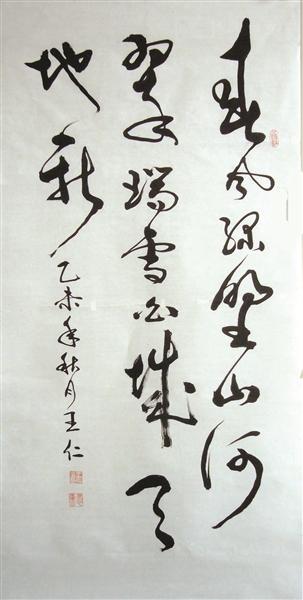 春风绿野山河
翠瑞雪白城天
地新
乙未年秋月王仁